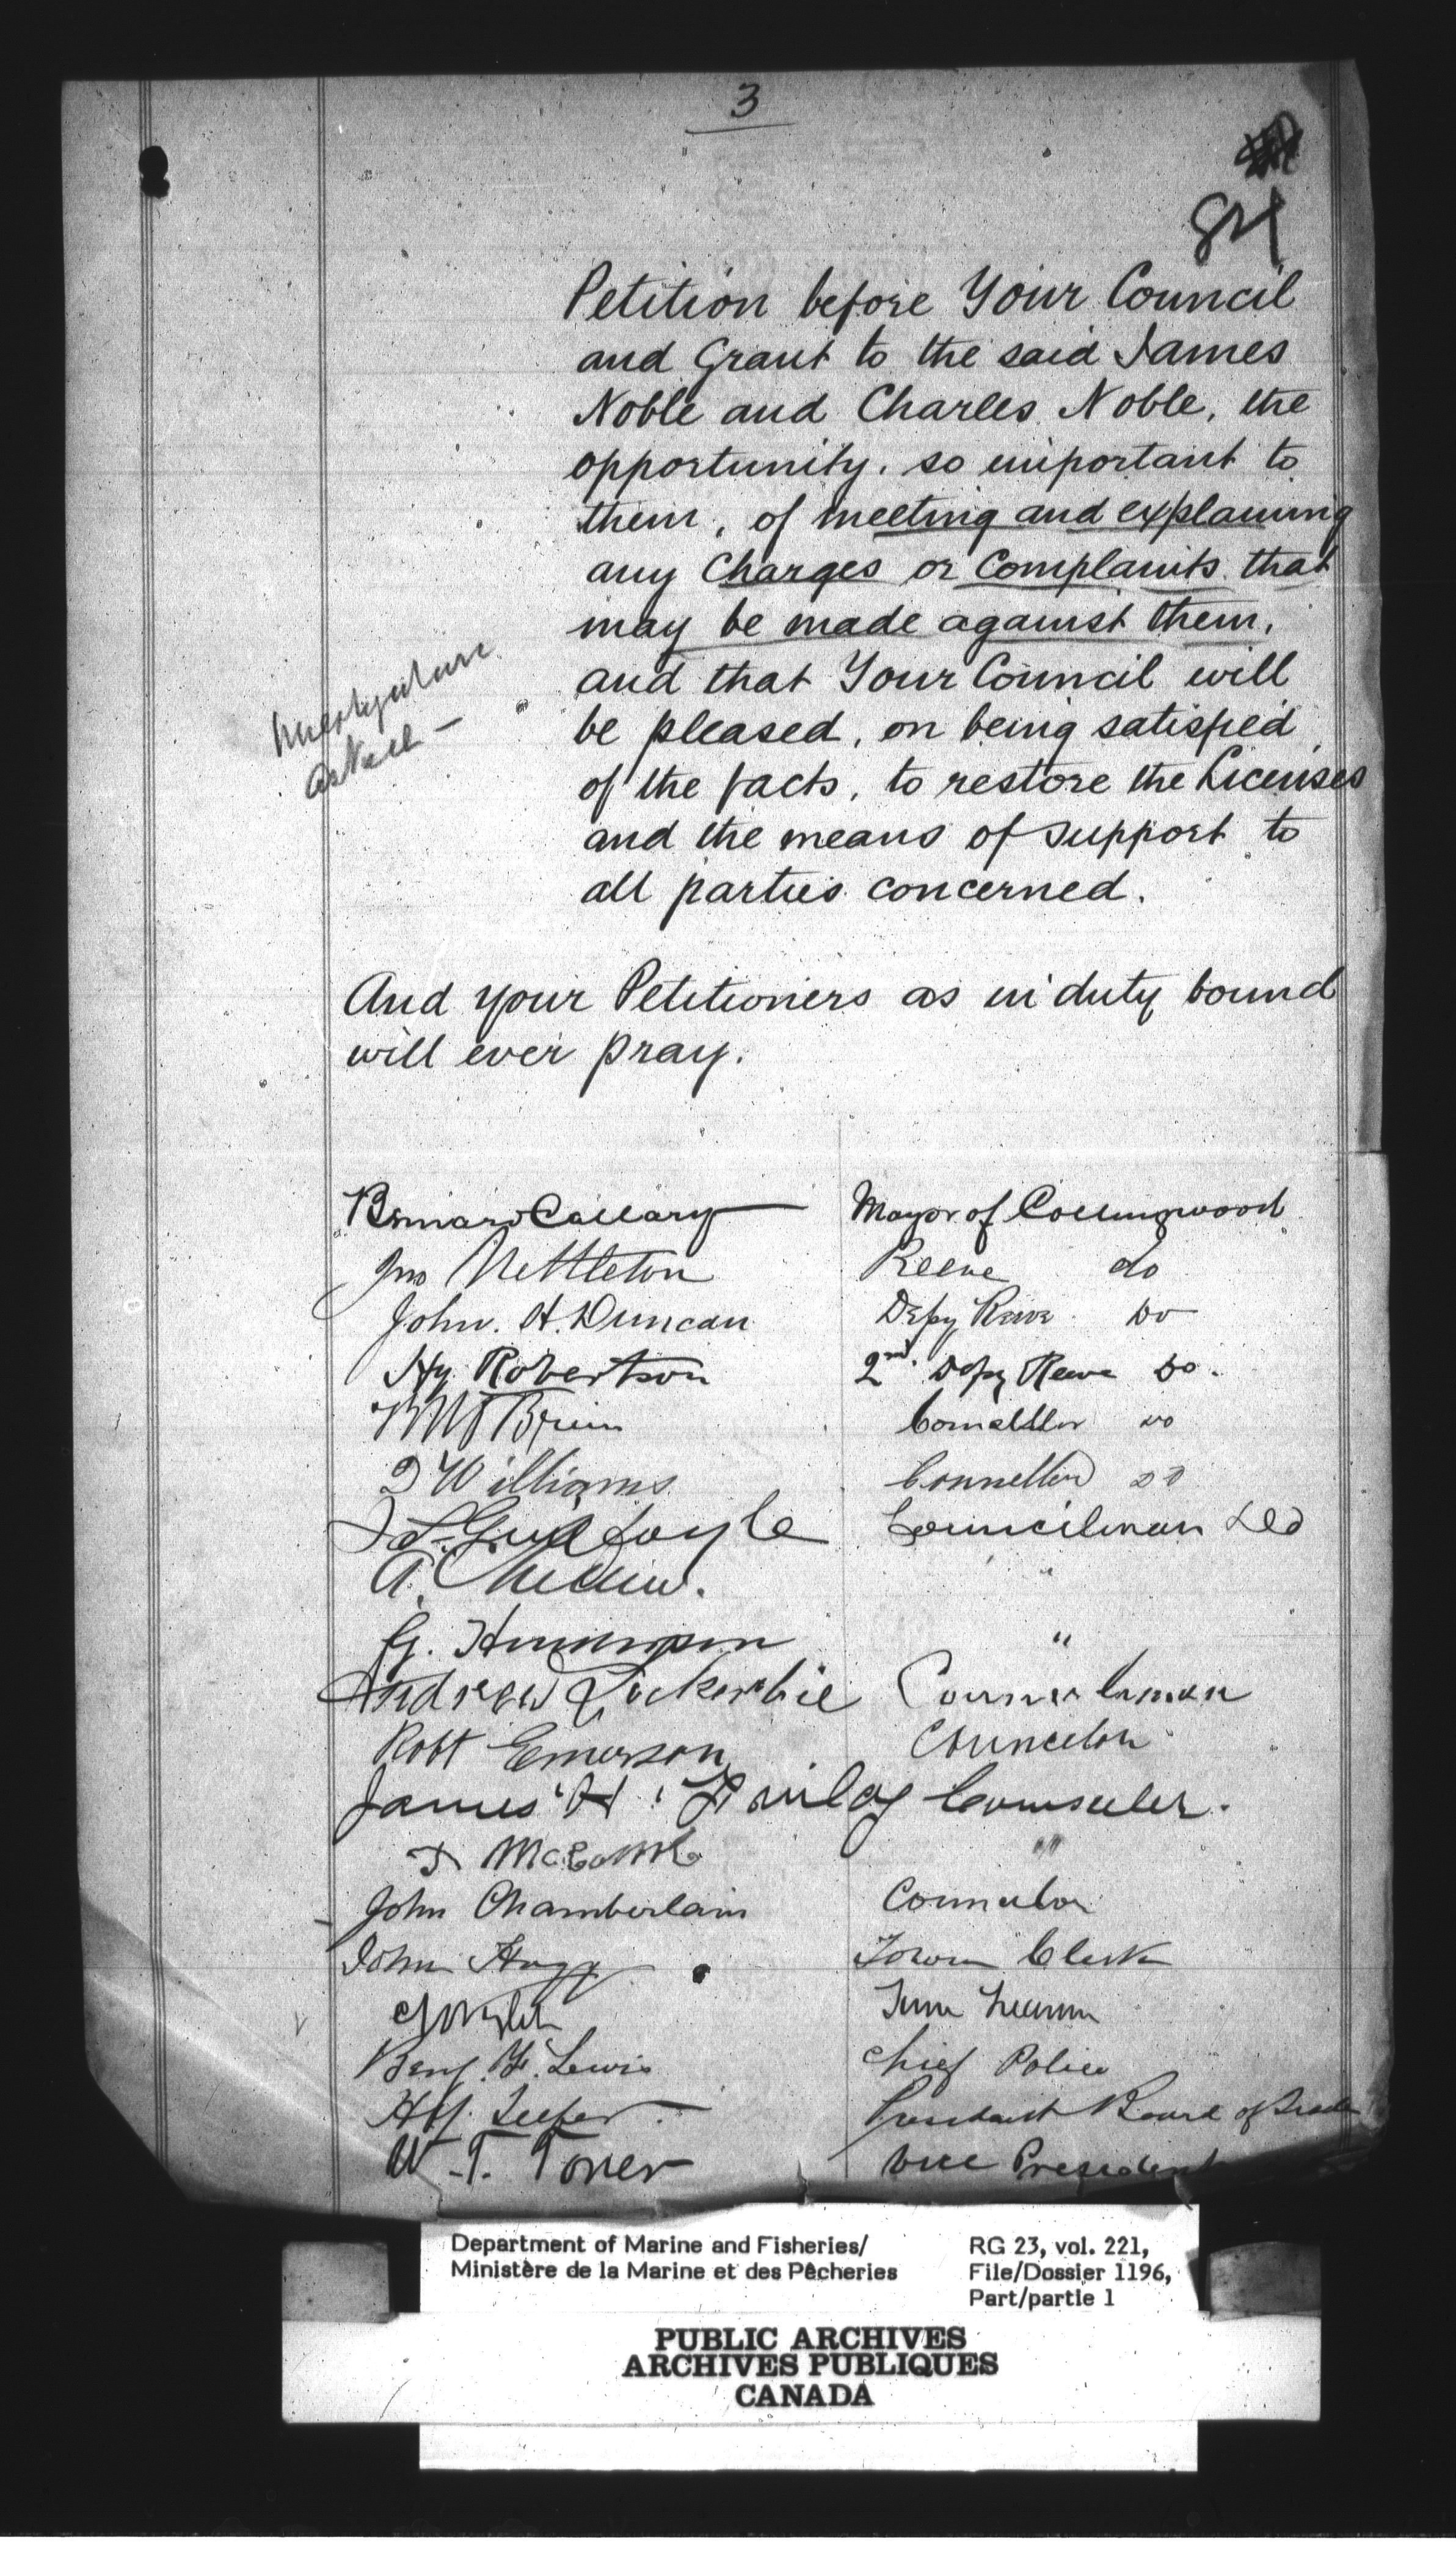 3
84
Petition before Your Council
and Grant to the said James
Noble and Charles Noble, the
opportunity, so important to
them, of meeting and explaining
any Charges or Complaints that
may be made against them,
and that Your Council will
be pleased, on being satisfied
of the facts, to restore the Licenses
and the means of support to
all parties concerned.
Investigation
And your Petitioners as in duty bound
will ever pray.
Bernard Callary Mayor of Collingwood
Jno Nettleton Reeve do
John. H. Duncan Depy Reeve Do
Hy Robertson 2nd Depy Reeve Do.
Do
Williams do
Councilman
A.
G. "
Andrew Lockerbie
Robt Emerson Councelor
James H. Finlay
"
John Chamberlain
John Hogg Town Clerk
Benj. F. Lewis Chief Police
President Board of Trade
W. T. Toner Vice President
Department of Marine and Fisheries/
Ministère de la Marine et des Pêcheries
RG 23, vol. 221,
File/Dossier 1196,
Part/partie 1
PUBLIC ARCHIVES
ARCHIVES PUBLIQUES
CANADA